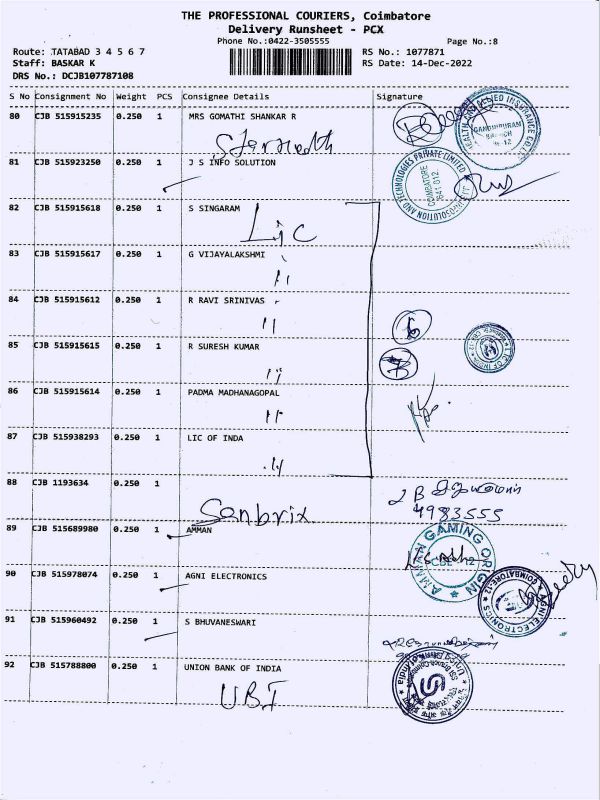 THE PROFESSIONAL COURIERS, Coimbatore
Delivery Runsheet - PCX
Phone No.:0422-3505555
Page No.:8
Route: TATABAD 3 4 5 6 7
RS No.: 1077871
Staff: BASKAR K
RS Date: 14-Dec-2022
DRS No.: DCJB107787108
S No Consignment No Weight PCS Consignee Details Signature
80 CJB 515915235 0.250 1 MRS GOMATHI SHANKAR R
HEALTH AND ALLIED INSURANCE CO.
GANDHIPURAM
BRANCH
81 CJB 515923250 0.250 1 J S INFO SOLUTION
INFOSOLUTION AND TECHNOLOGIES PRIVATE LIMITED
COIMBATORE
641 012
82 CJB 515915618 0.250 1 S SINGARAM
LIC
83 CJB 515915617 0.250 1 G VIJAYALAKSHMI
84 CJB 515915612 0.250 1 R RAVI SRINIVAS
85 CJB 515915615 0.250 1 R SURESH KUMAR
86 CJB 515915614 0.250 1 PADMA MADHANAGOPAL
87 CJB 515938293 0.250 1 LIC OF INDA
88 CJB 1193634 0.250 1
Sanbrix
4983555
89 CJB 515689980 0.250 1 AMMAN
AMMAN GAMING ORIGIN
CBE-12
90 CJB 515978074 0.250 1 AGNI ELECTRONICS
AGNI ELECTRONICS
COIMBATORE-12
91 CJB 515960492 0.250 1 S BHUVANESWARI
92 CJB 515788800 0.250 1 UNION BANK OF INDIA
UBI